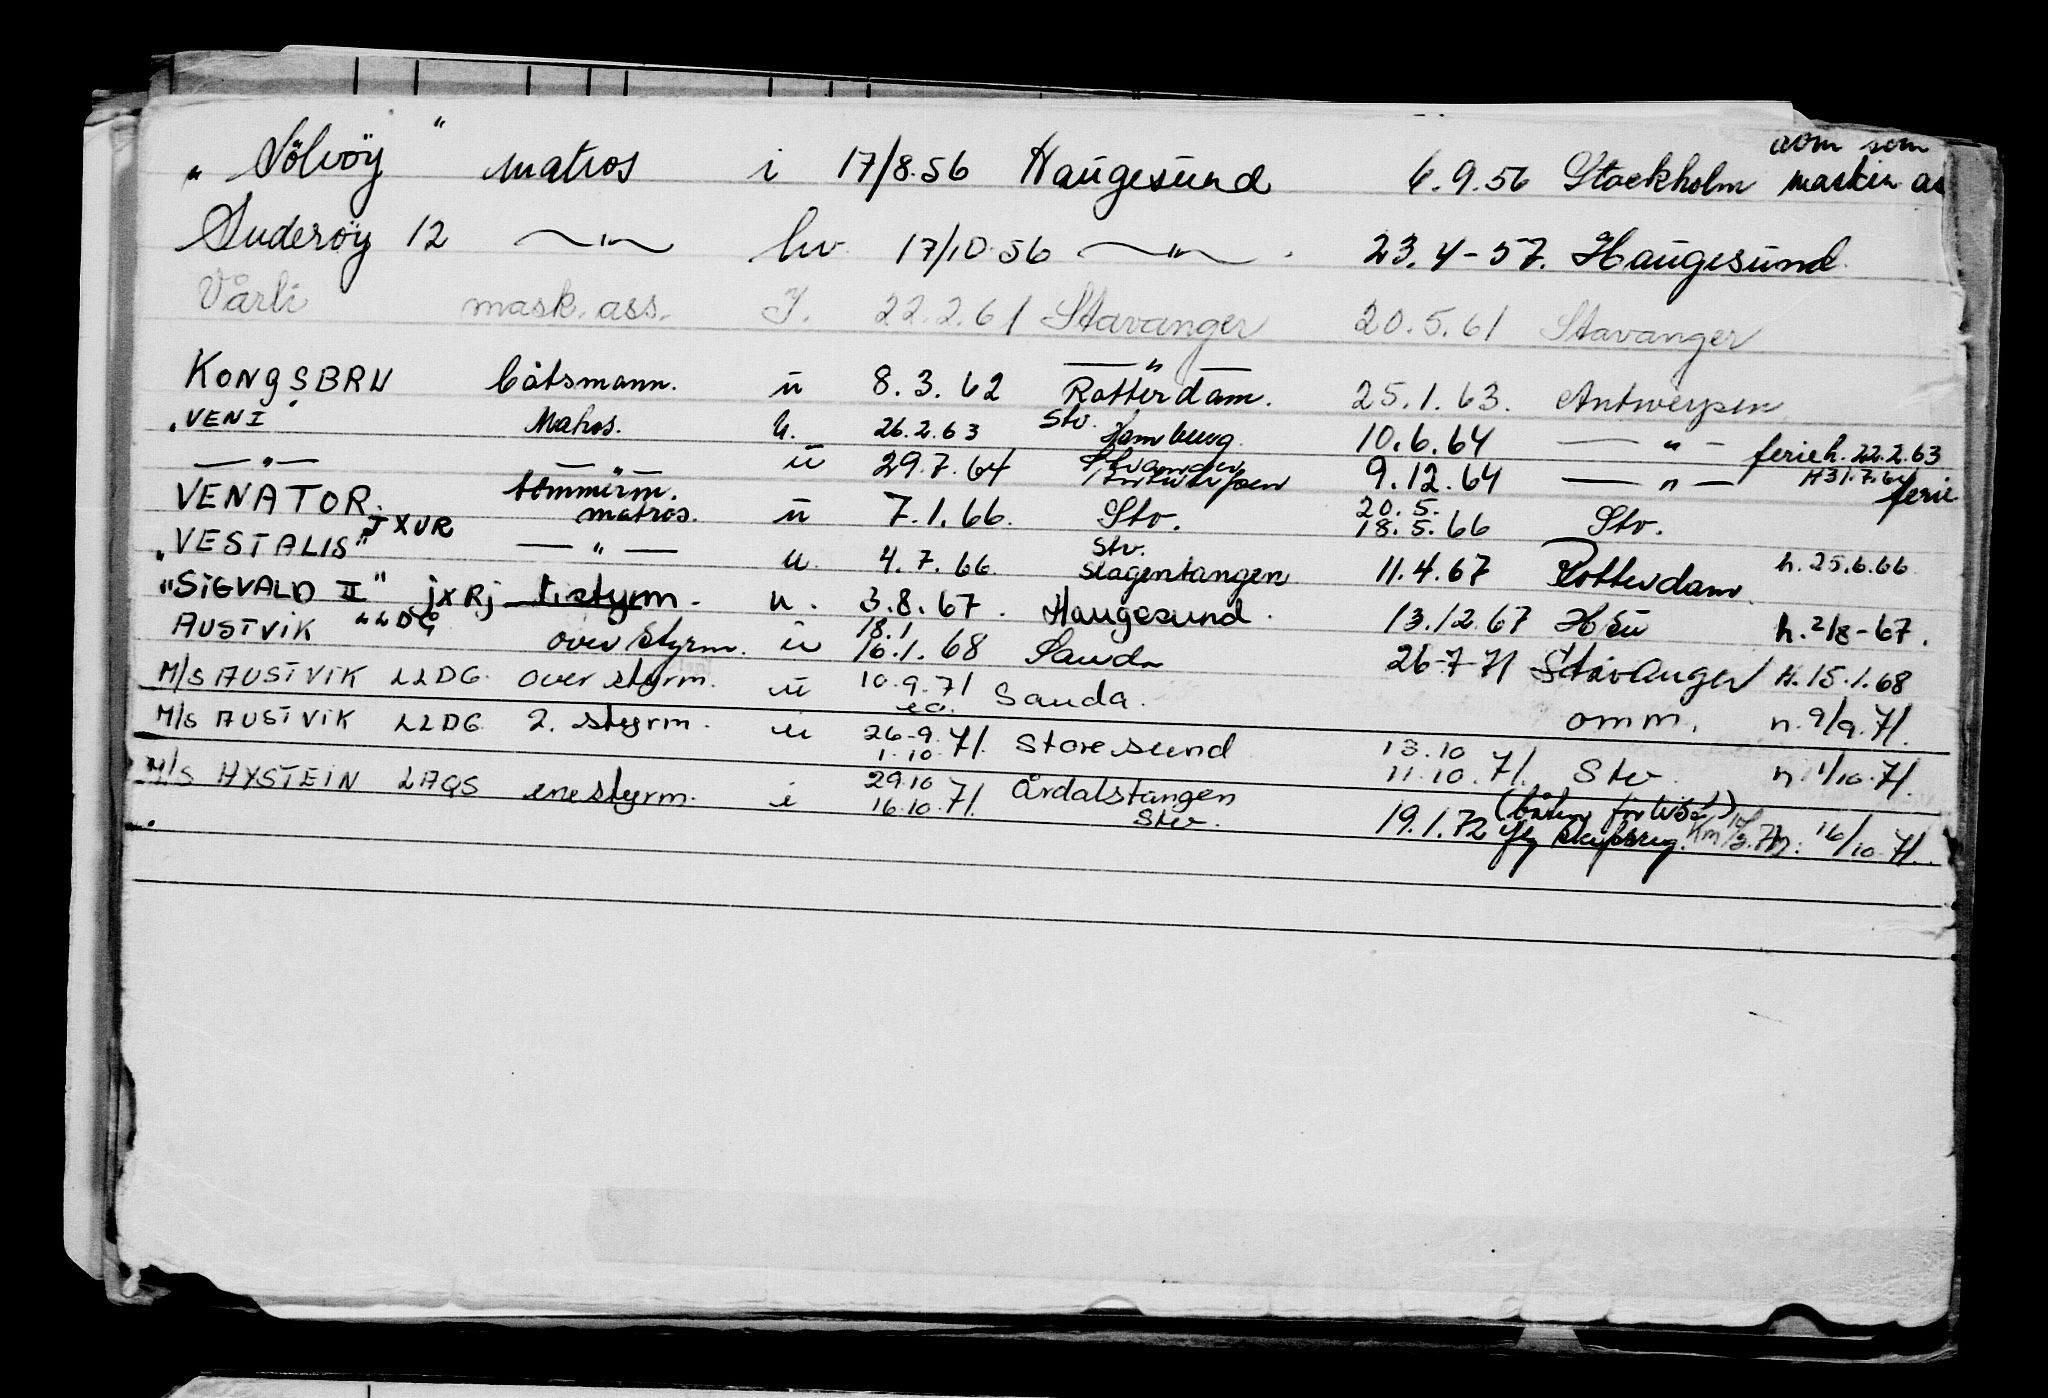 omm som
" Sölvöy " matros i 17/8.56 Haugesund 6.9.56 Stockholm maskin as
Suderöy 12 —"— hv 17/10.56 —"— 23.4-57. Haugesund
Vårli mask. ass. I. 22.2.61 Stavanger 20.5.61 Stavanger
—"—
KONGSBRU båtsmann. u 8.3.62 Rotterdam. 25.1.63. Antwerpen
"VENI" Matros. u. 26.2.63 Stv. Hamburg. 10.6.64 —"— ferie h. 22.2.63
—"— —"— u 29.7.64 Stavanger Antwerpen 9.12.64 —"— H 31.7.64 ferie
VENATOR. tömmerm. matros. u 7.1.66. Stv. 20.5. 18.5.66 Stv.
"VESTALIS" JXUR —"— u. 4.7.66 Stv. Slagentangen 11.4.67 Rotterdam h. 25.6.66
"SIGVALD II" jXRj 1. styrm. u. 3.8.67. Haugesund. 13.12.67 H. 2/8-67.
AUSTVIK LLDG overstyrm. u 18.1 16.1.68 Sauda 26-7-71 Stavanger H. 15.1.68
M/S AUSTVIK LLDG overstyrm. u 10.9.71 Sauda. omm. n. 9/9.71.
M/S AUSTVIK LLDG 2. styrm. u 26-9. 1.10.71. Storesund 13.10 11.10.71. Stv. n 1/10.71.
M/S HYSTEIN LAQS enestyrm. i 29.10 16.10.71. Årdalstangen Stv. 19.1.72 (båten forlist) 16/10.71.